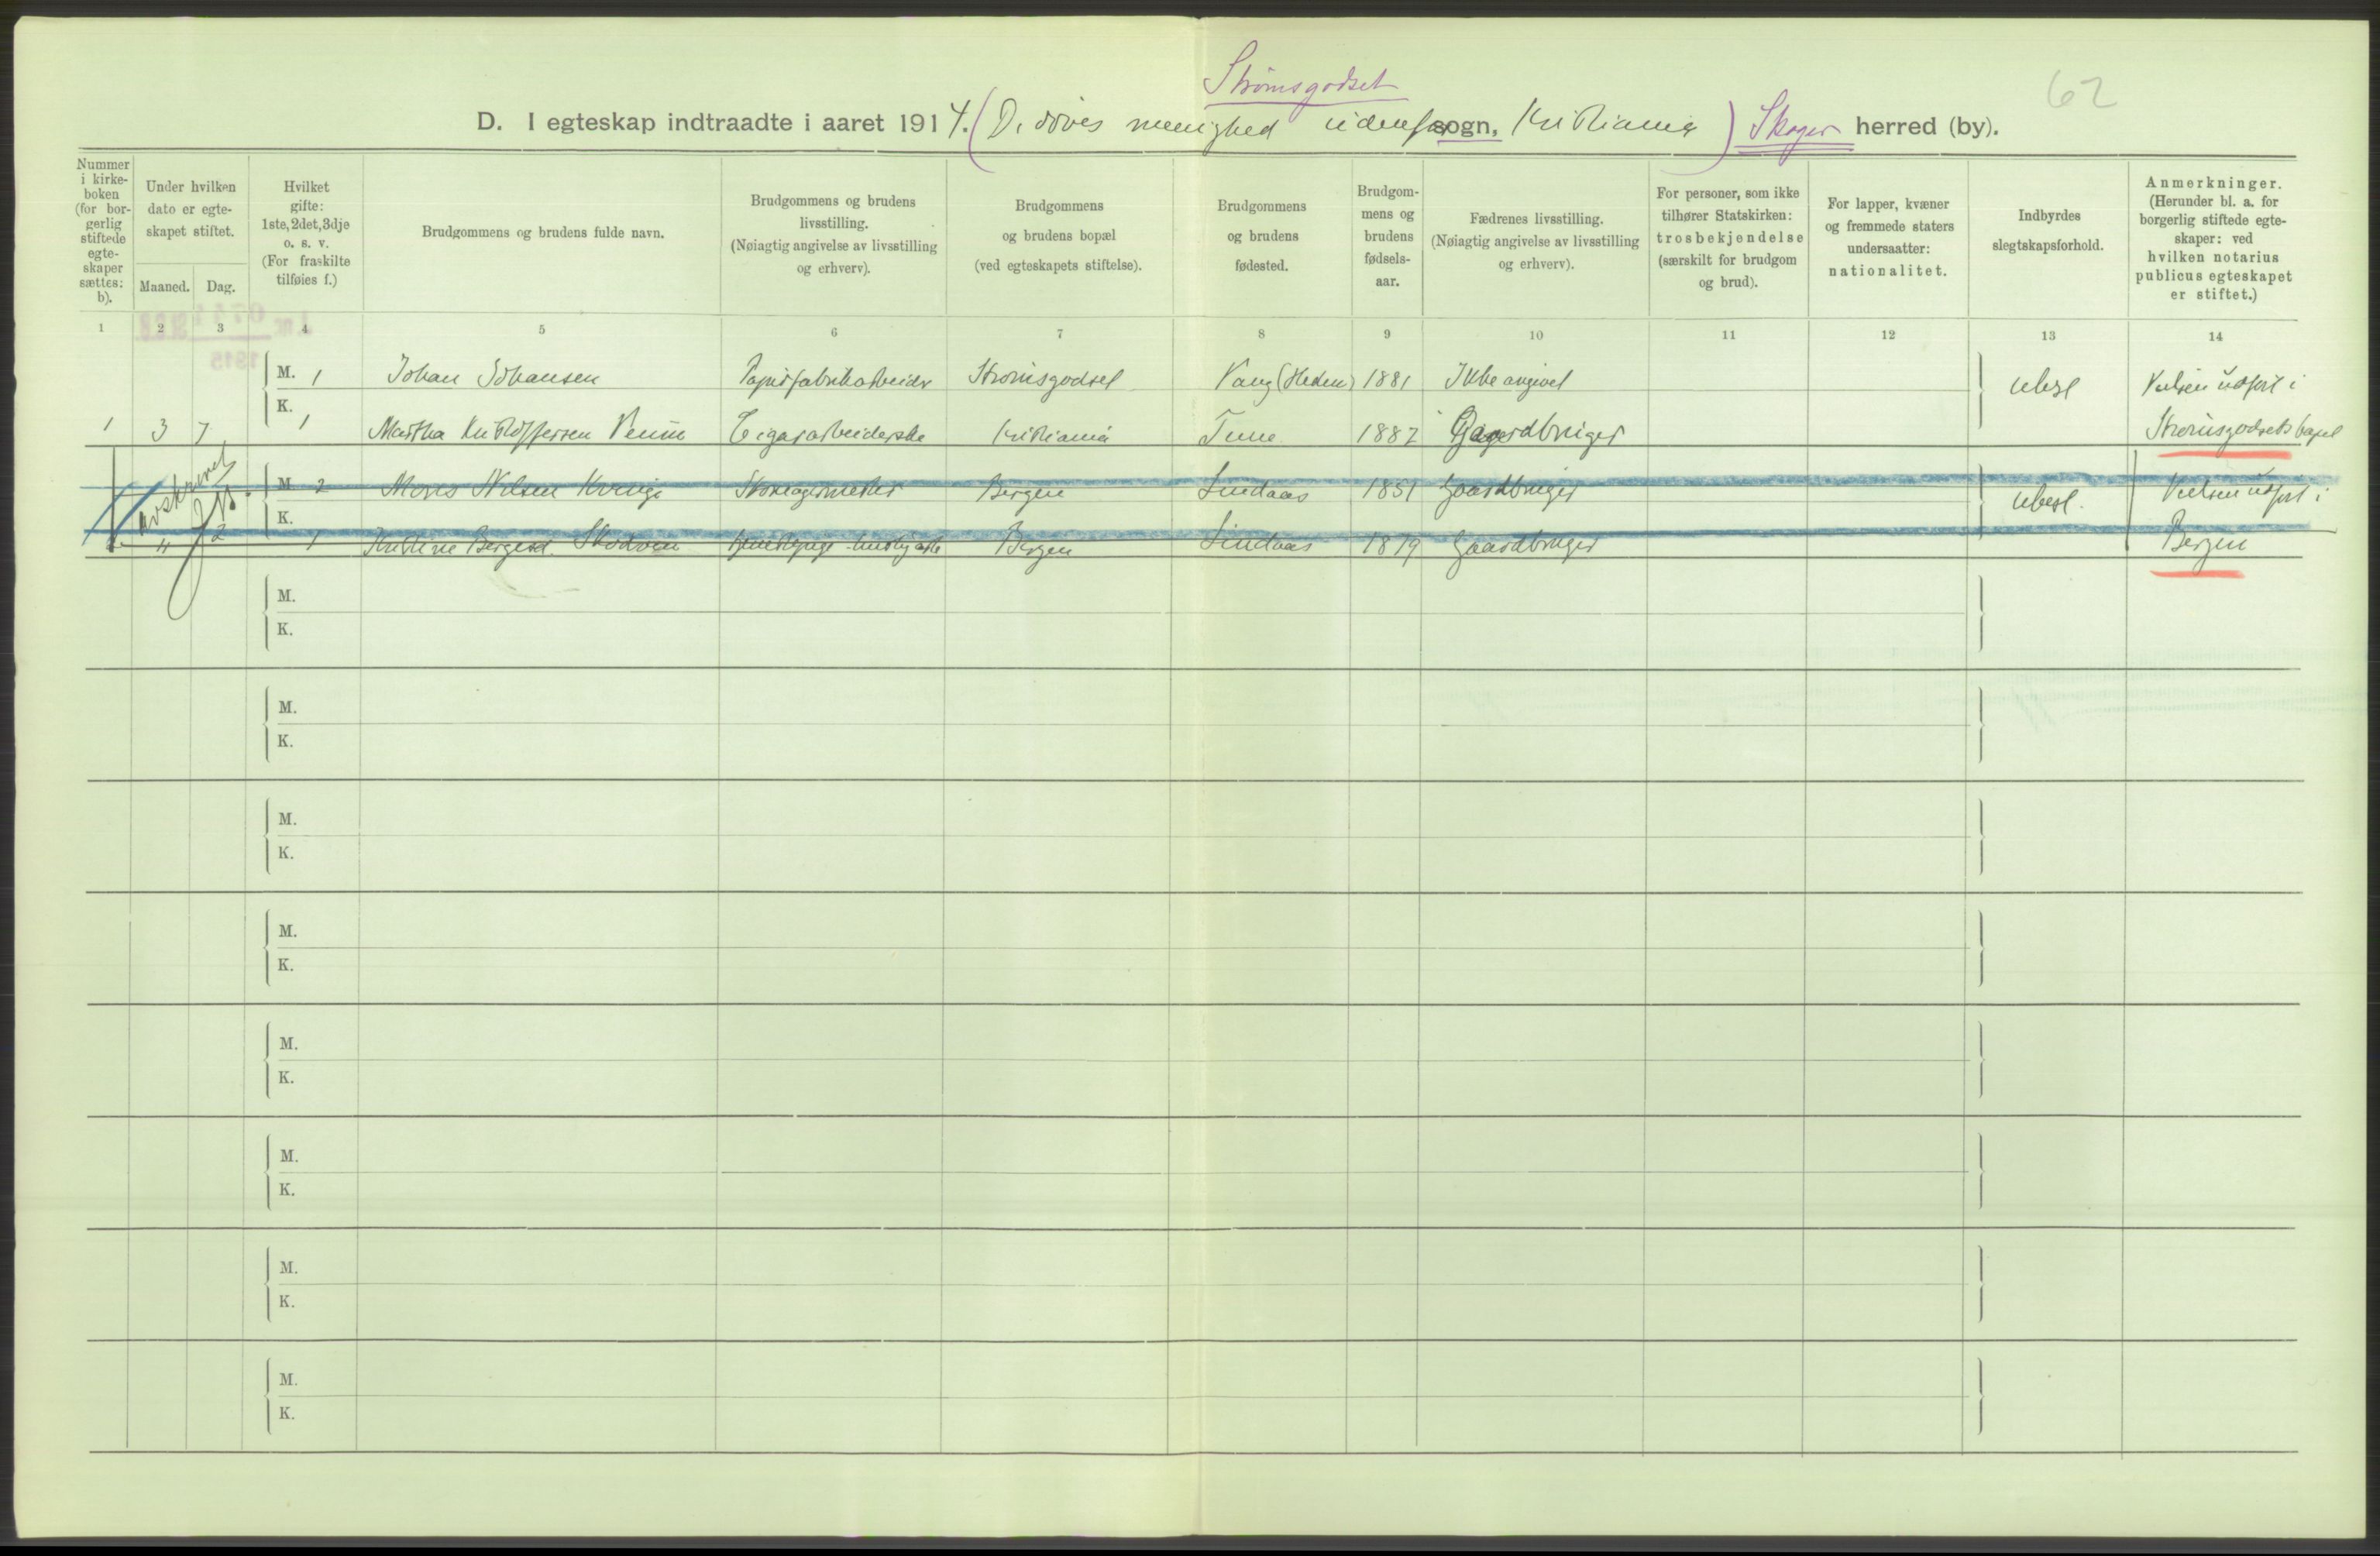 Strømsgodset
62
D. I egteskap indtraadte i aaret 1914. (De døves menighed udenfor sogn, Kristiania) Skoger herred (by).
Nummer i kirkeboken (for borgerlig stiftede egteskaper sættes: b).
Under hvilken dato er egteskapet stiftet.
Maaned. Dag.
Hvilket gifte: 1ste, 2det, 3dje o. s. v. (For fraskilte tilføies f.)
Brudgommens og brudens fulde navn.
Brudgommens og brudens livsstilling. (Nøiagtig angivelse av livsstilling og erhverv).
Brudgommens og brudens bopæl (ved egteskapets stiftelse).
Brudgommens og brudens fødested.
Brudgommens og brudens fødselsaar.
Fædrenes livsstilling. (Nøiagtig angivelse av livsstilling og erhverv).
For personer, som ikke tilhører Statskirken: trosbekjendelse (særskilt for brudgom og brud).
For lapper, kvæner og fremmede staters undersaatter: nationalitet.
Indbyrdes slegtskapsforhold.
Anmerkninger. (Herunder bl. a. for borgerlig stiftede egteskaper: ved hvilken notarius publicus egteskapet er stiftet.)
1 2 3 4 5 6 7 8 9 10 11 12 13 14
M. 1 Johan Johansen Papirfabrikarbeider Strømsgodset Vang (Hedem) 1881 Ikke angivet ubesl Vielsen udført i
K.
1 3 7 1 Martha Kristoffersen Cigararbeiderske Kristiania Tune 1887 Gaardbruger Strømsgodsets kapel
avskrevet
M. 2 Mons Nilsen Kvinge Skomagermester Bergen Lindaas 1851 Gaardbruger ubesl. Vielsen udført i
K.
2 " 2 1 Kristine Bergesd. Skodvin Bergen Lindaas 1879 Gaardbruger Bergen
M.
K.
M.
K.
M.
K.
M.
K.
M.
K.
M.
K.
M.
K.
M.
K.